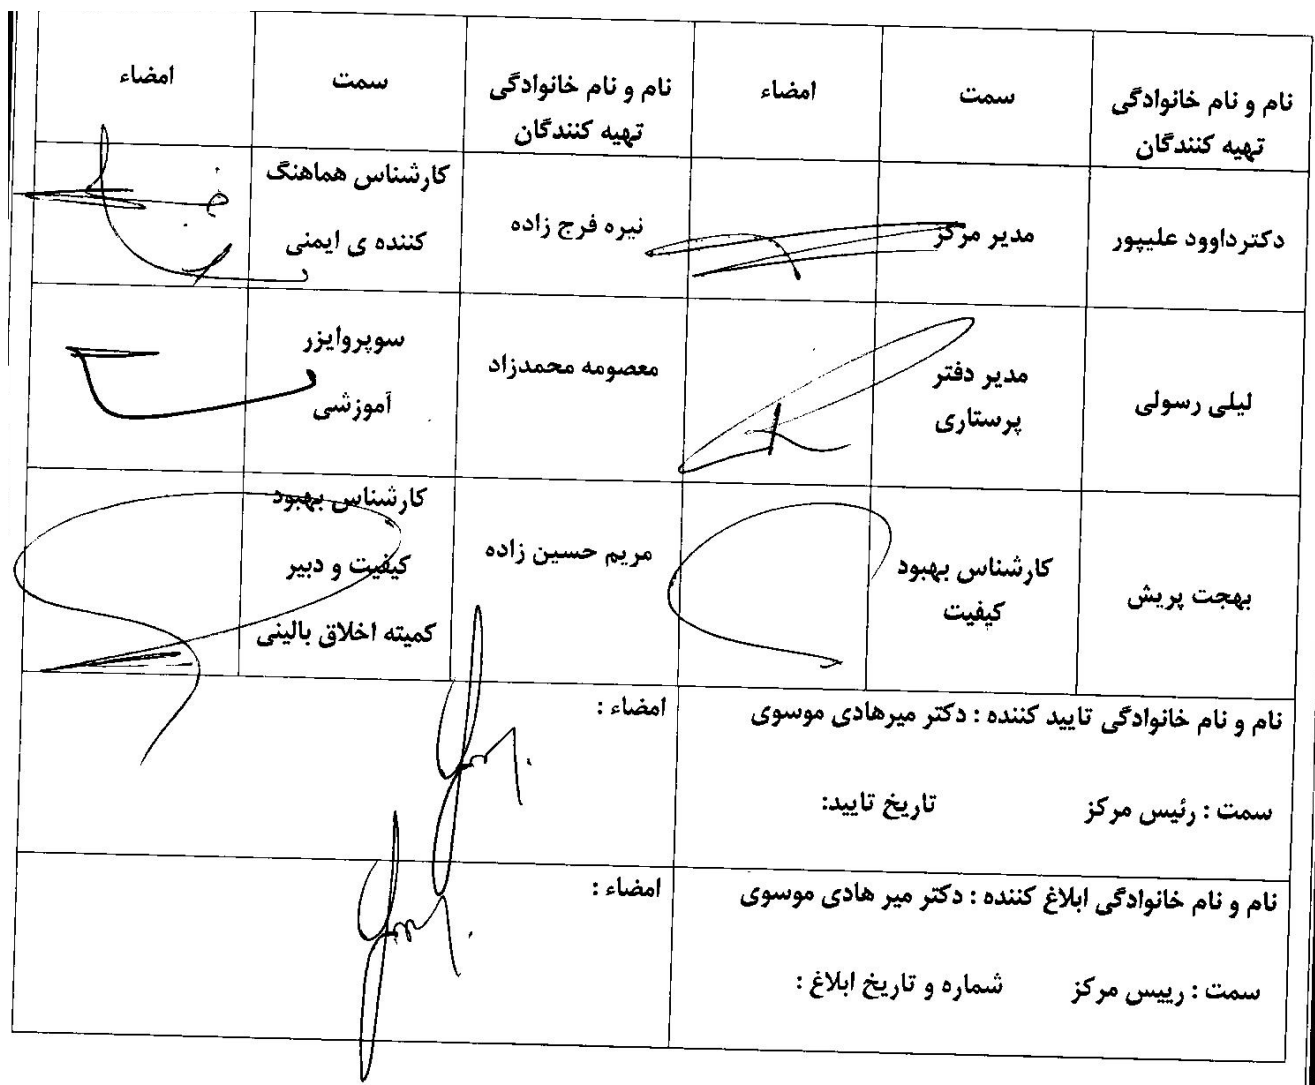 نام و نام خانوادگی
تهیه کنندگان
سمت
امضاء
نام و نام خانوادگی
تهیه کنندگان
سمت
امضاء
دکترداوود علیپور
مدیر مرکز
نیره فرج زاده
کارشناس هماهنگ
کننده ی ایمنی
لیلی رسولی
مدیر دفتر
پرستاری
معصومه محمدزاد
سوپروایزر
آموزشی
بهجت پریش
کارشناس بهبود
کیفیت
مریم حسین زاده
کارشناس بهبود
کیفیت و دبیر
کمیته اخلاق بالینی
نام و نام خانوادگی تایید کننده : دکتر میرهادی موسوی
امضاء :
سمت : رئیس مرکز تاریخ تایید:
نام و نام خانوادگی ابلاغ کننده : دکتر میر هادی موسوی
امضاء :
سمت : رییس مرکز شماره و تاریخ ابلاغ :